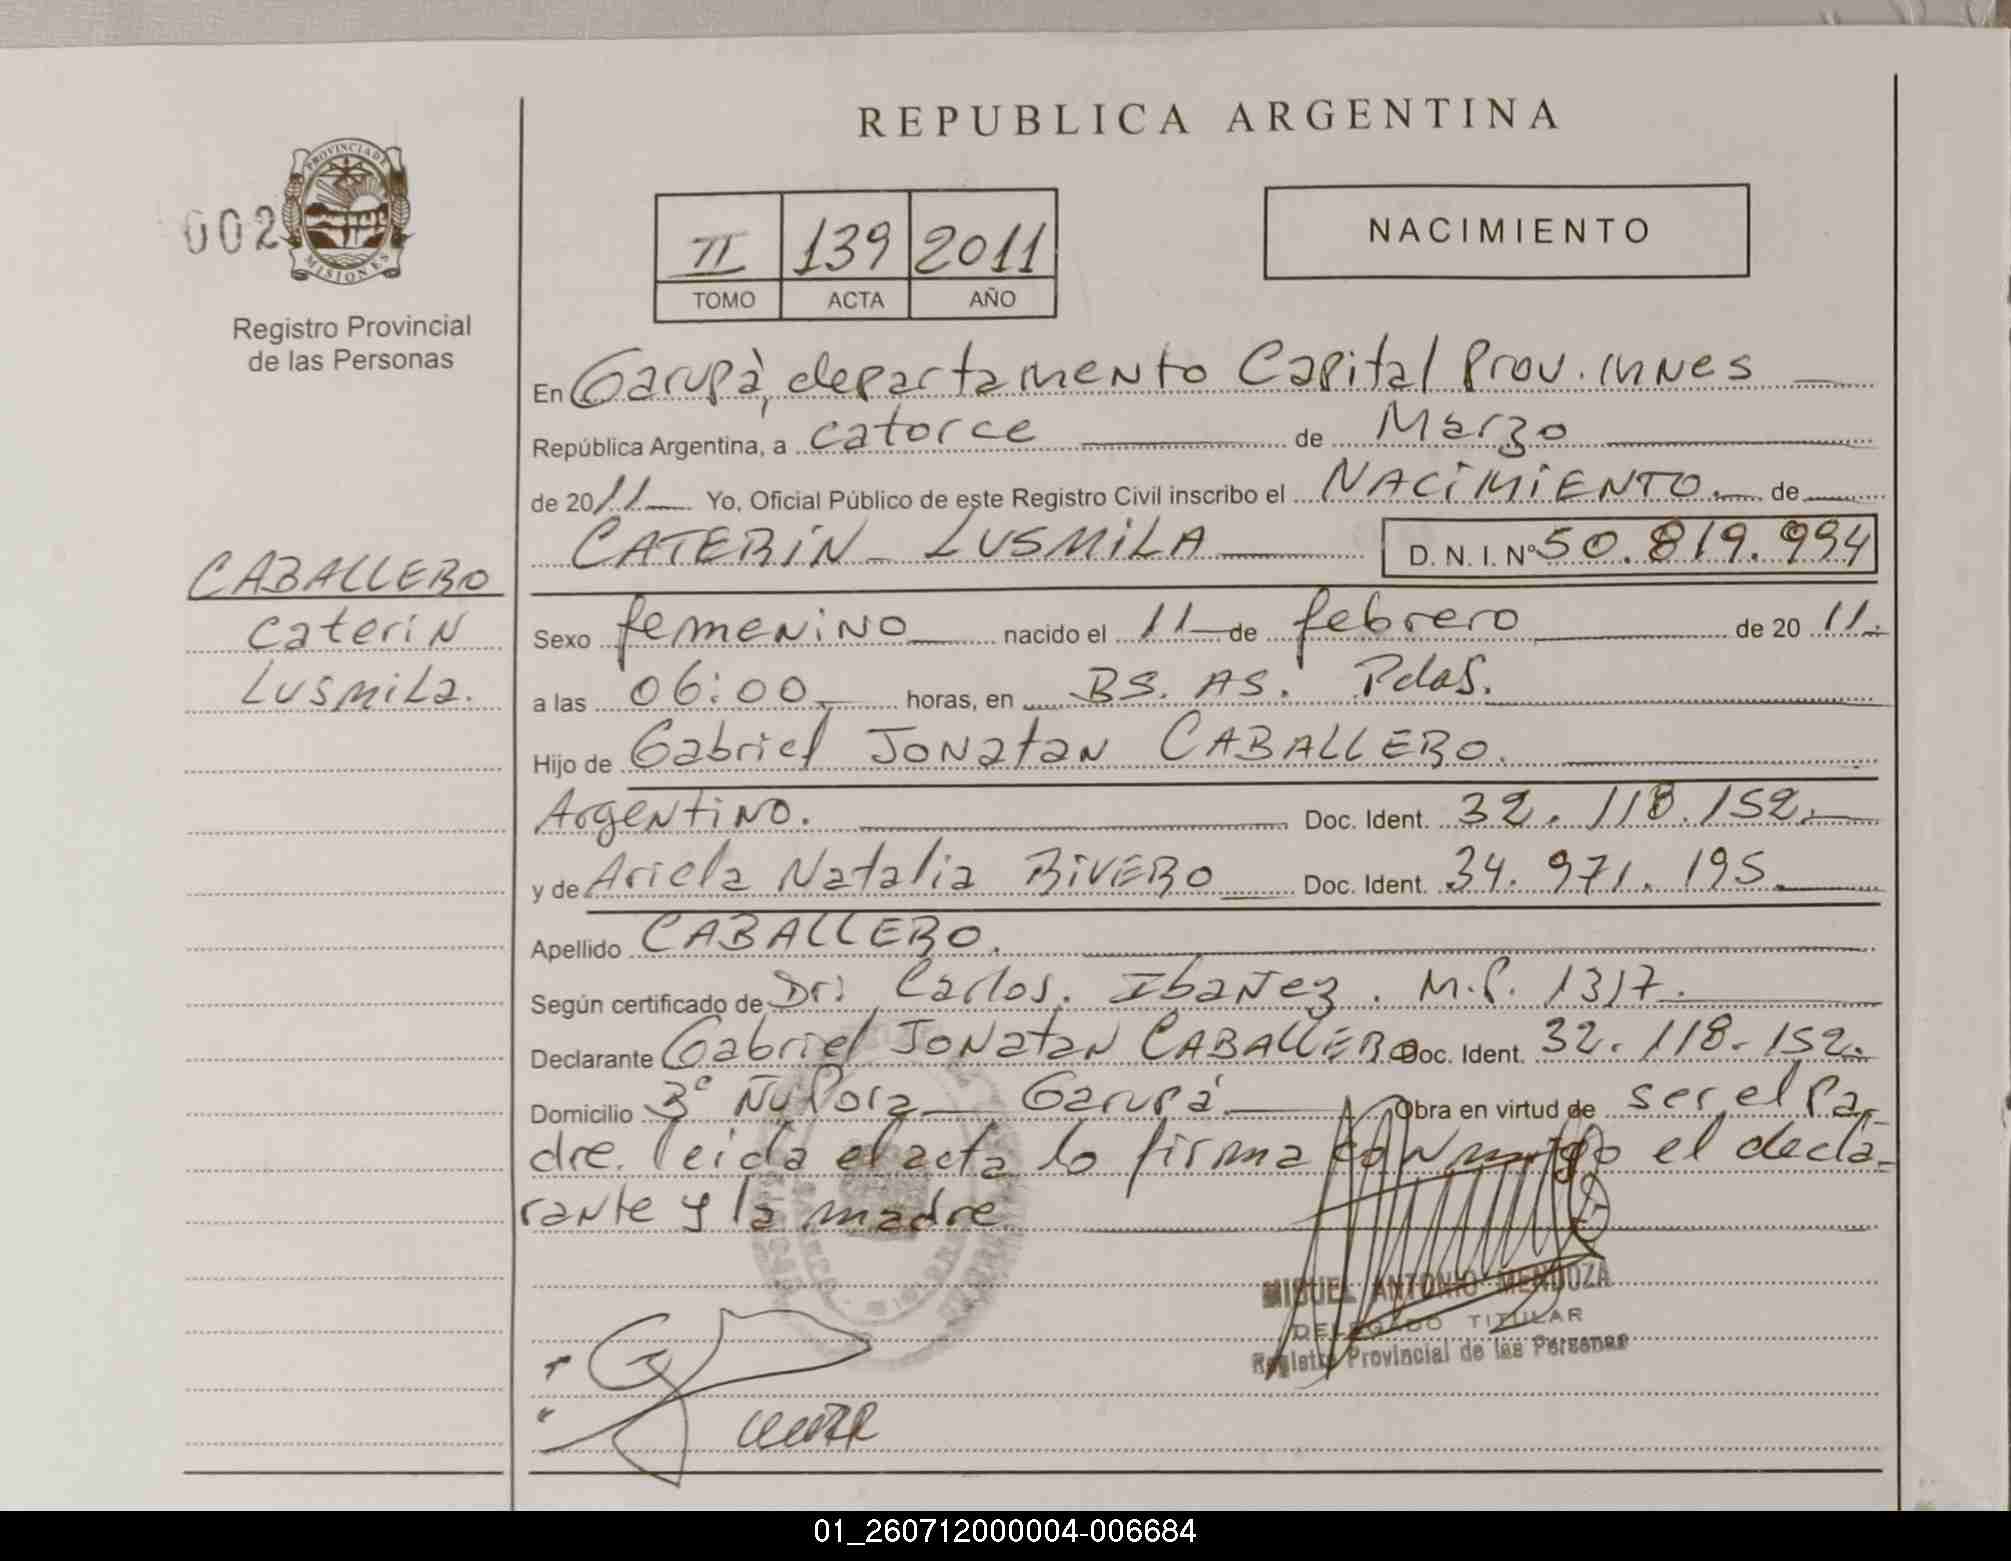 REPUBLICA ARGENTINA
002
PROVINCIA DE
MISIONES
Registro Provincial
de las Personas
II 139 2011
TOMO ACTA AÑO
NACIMIENTO
En Garupà, departamento Capital Prov. Mnes
República Argentina, a catorce de Marzo
de 2011 Yo, Oficial Público de este Registro Civil inscribo el NACIMIENTO de
CATERIN LUSMILA D. N. I. Nº 50.819.994
CABALLERO
Caterin
Lusmila.
Sexo femenino nacido el 11 de febrero de 2011.
a las 06:00 horas, en BS. AS. Pdas.
Hijo de Gabriel Jonatan CABALLERO.
Argentino. Doc. Ident. 32.118.152.
y de Ariela Natalia RIVERO Doc. Ident. 34.971.195.
Apellido CABALLERO.
Según certificado de Dr: Carlos. Ibañez. M.P. 1317.
Declarante Gabriel Jonatan CABALLERO Doc. Ident. 32.118.152.
Domicilio 3º Ñu Pora Garupá Obra en virtud de ser el Pa-
dre. leida el acta lo firma conmigo el decla-
rante y la madre
MIGUEL ANTONIO MENDOZA
DELEGADO TITULAR
Registro Provincial de las Personas
01_260712000004-006684